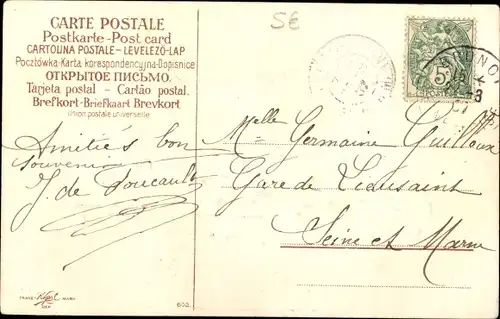 CARTE POSTALE
Postkarte - Post card
CARTOLINA POSTALE - LEVELEZŐ-LAP
Pocztówka-Karta korespondencyjna-Dopisnice
ОТКРЫТОЕ ПИСЬМО.
Tarjeta postal - Cartão postal.
Brefkort-Briefkaart Brevkort
Union postale universelle
5€
5
POSTES
Amitiés bon
souvenir
J. de Foucault
Melle Germaine Guilloux
Gare de Lieusaint
Seine et Marne
TRADE MARK
603